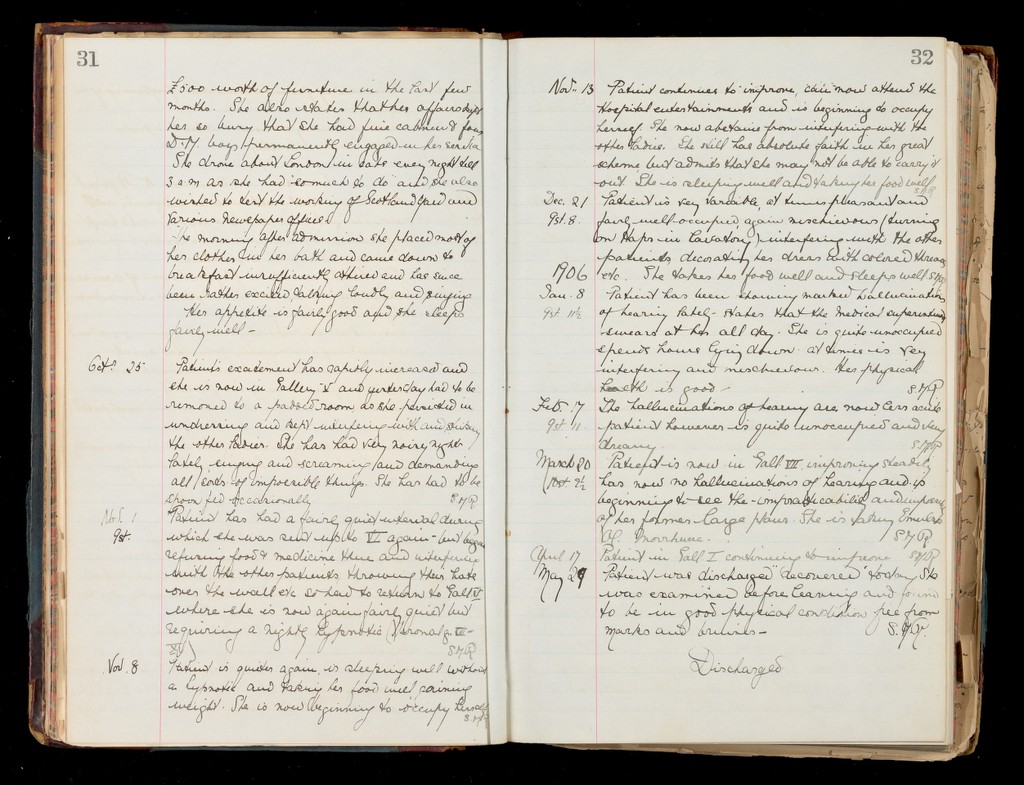 31
£500 worth of furniture in the last few
months. She also states that her affairs kept
her so busy that she had five cabmen & four
D.M. boys permanently engaged in her service
She drove about London in cabs every night till
3 a.m. as she had "so much to do" and she also
wished to test the working of Scotland Yard and
various newspaper offices.
The morning after admission she placed most of
her clothes in her bath and came down to
breakfast insufficiently attired and has since
been rather excited, talking loudly and singing
Her appetite is fairly good and she sleeps
fairly well -
Octr. 25 Patient's excitement has rapidly increased and
she is now in Gallery V and yesterday had to be
removed to a padded room as she persisted in
undressing and kept interfering with and
the other ladies. She has had very noisy nights
lately, singing and screaming and demanding
all sorts of impossible things. She has had to be
spoon fed occasionally
Nov. 1 Patient has had a fairly quiet interval during
9st. which she was sent up to VI again - but began
refusing food & medicine there and interfering
with the other patients throwing their hats
over the wall etc so had to return to Gall V
where she is now again fairly quiet but
requiring a nightly hypnotic (Veronal gr. VII -
X)
Nov. 8 Patient is quieter again, is sleeping well without
a hypnotic and taking her food well gaining
weight. She is now beginning to occupy herself
32
Nov. 13 Patient continues to improve, can now attend the
Hospital entertainments and is beginning to occupy
herself. She now abstains from interfering with the
other ladies. She still has absolute faith in her great
scheme but admits that she may not be able to carry it
out. She is sleeping well and taking her food well
Dec. 21 Patient is very variable, at times pleasant and
9st. 8. fairly well-occupied, again mischievous (turning
on taps in lavatory) interfering with the other
patients, decorating her dress with colored threads
1906 etc. She takes her food well and sleeps well
Jan. 8 Patient has been showing marked hallucinations
9st 11½ of hearing lately - states that the medical superintendent
swears at her all day. She is quite unoccupied
spends hours lying down. at times is very
interfering and mischievous. Her physical
health is good -
Feb. 17 The hallucinations of hearing are now less acute
9st 11 patient however is quite unoccupied and very
dreamy.
March 20 Patient is now in Gall VII, improving steadily
(10st 2½ has now no hallucinations of hearing and is
beginning to see the impracticability and
of her former large plans. She is taking Emulsio
Ol. Morrhuae.
April 17 Patient in Gall I continuing to improve
May 29 Patient was discharged "Recovered" today. She
was examined before leaving and found
to be in good physical condition free from
marks and bruises -
Discharged